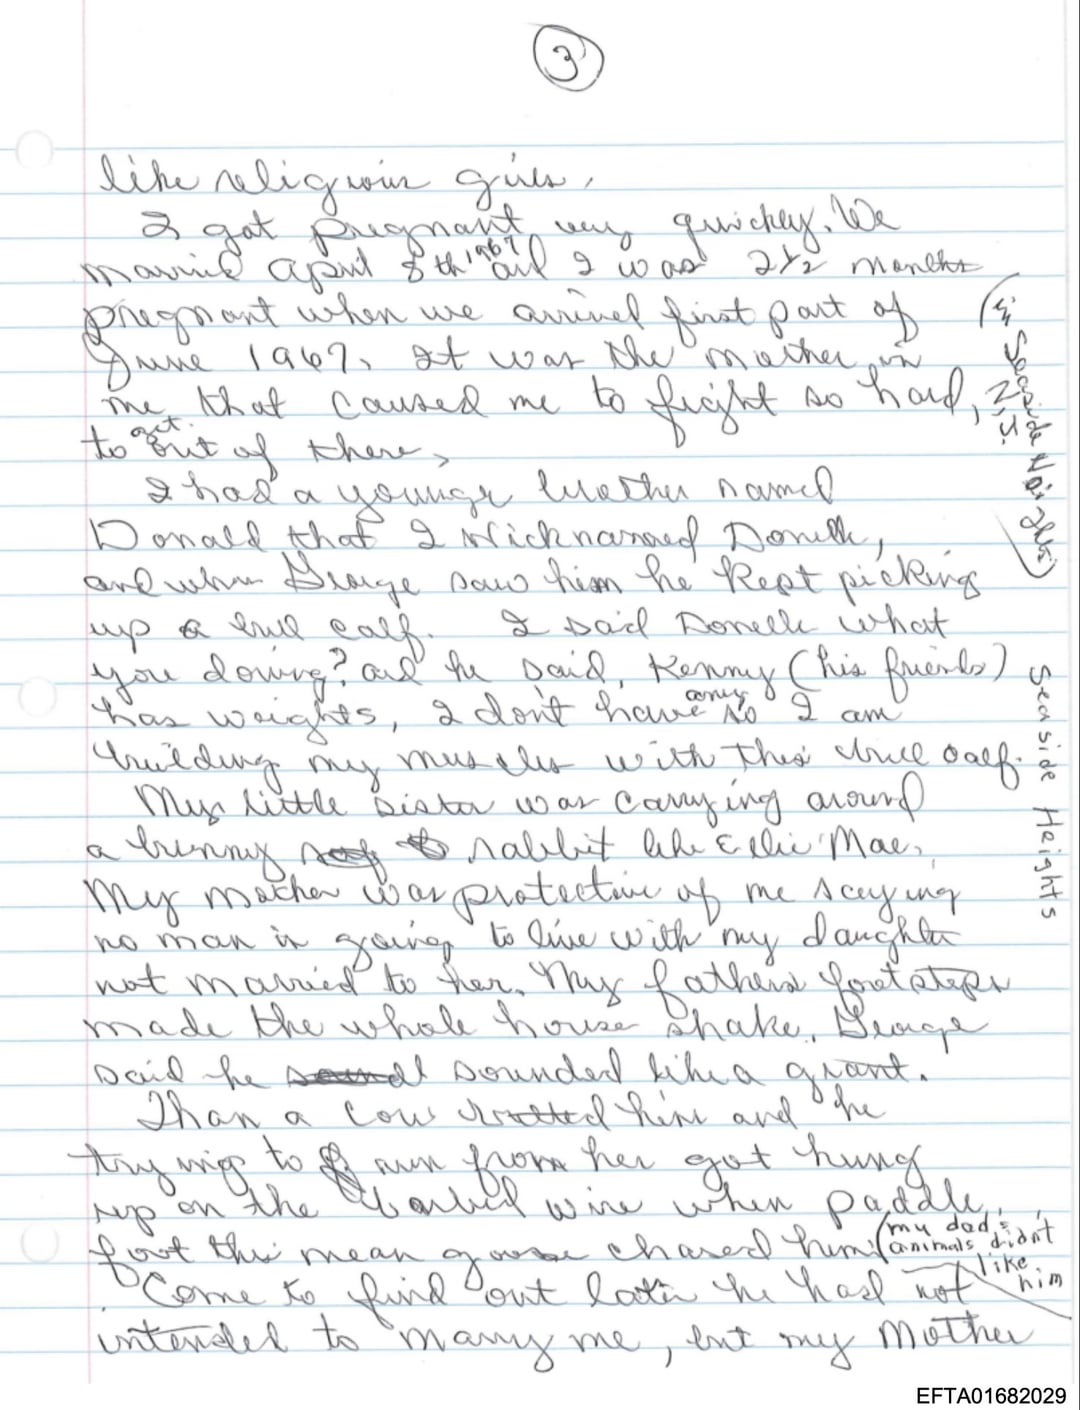 3
like religious girls.
I got pregnant very quickly. We
married April 8th 1967 and I was 2 1/2 months
pregnant when we arrived first part of
June 1967. It was the mother in
me that caused me to fight so hard,
to get out of there.
(in Seaside Heights)
N.J.
I had a younger brother named
Donald that I Nicknamed Donelle,
and when George saw him he kept picking
up a bull calf. I said Donelle what
you dowing? and he said, Kenny (his friends)
has weights, I don't have any so I am
building my muscles with this bull calf.
Seaside Heights
My little sister was carrying around
a bunny rabbit like Ellie Mae.
My mother was protective of me saying
no man is going to live with my daughter
not married to her. My fathers foot steps
made the whole house shake. George
said he sounded like a giant.
Than a cow butted him and he
trying to run from her got hung
up on the barbed wire when paddle
foot the mean goose chased him (my dads
animals didnt
like
him
Come to find out later he had not
intended to marry me, but my Mother
EFTA01682029